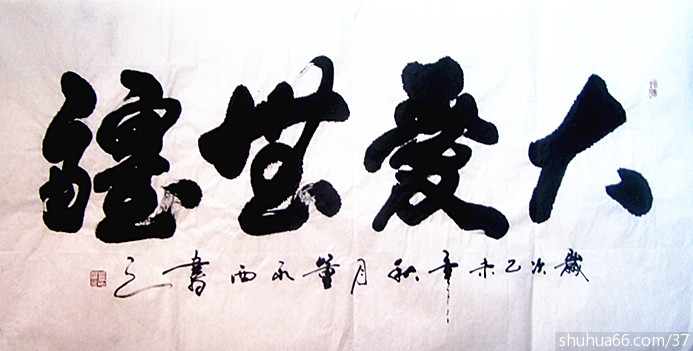 大愛無疆
歲次乙未年秋月董永西書之
shuhua66.com/37